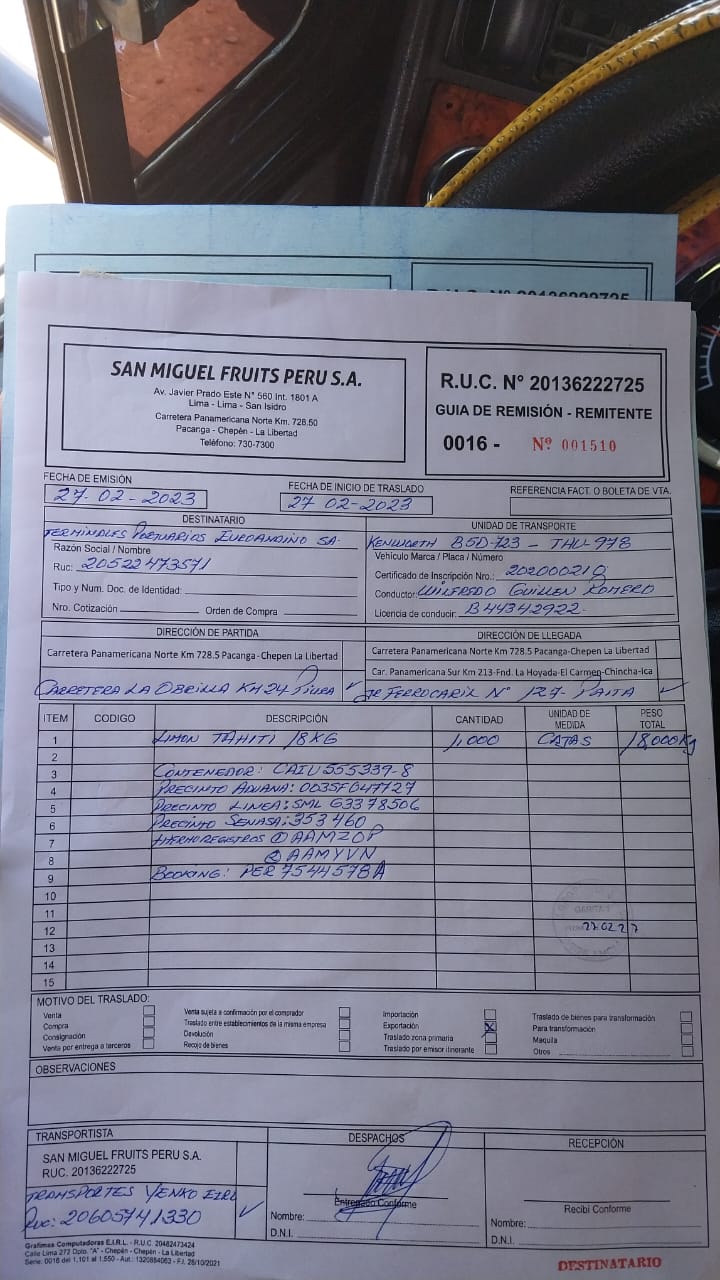 R.U.C. Nº 20136222725
SAN MIGUEL FRUITS PERU S.A.
Av. Javier Prado Este N° 560 Int. 1801 A
Lima - Lima - San Isidro
Carretera Panamericana Norte Km. 728.50
Pacanga - Chepén - La Libertad
Teléfono: 730-7300
R.U.C. N° 20136222725
GUIA DE REMISIÓN - REMITENTE
0016 - Nº 001510
FECHA DE EMISIÓN
27-02-2023
FECHA DE INICIO DE TRASLADO
27 02-2023
REFERENCIA FACT. O BOLETA DE VTA.
DESTINATARIO
TERMINALES PORTUARIOS EUROANDINO SA.
Razón Social / Nombre
Ruc: 20522473571
Tipo y Num. Doc. de Identidad:
Nro. Cotización Orden de Compra
UNIDAD DE TRANSPORTE
KENWORTH B5D-723 - THU-978
Vehículo Marca / Placa / Número
Certificado de Inscripción Nro.: 202000210
Conductor: WILFREDO GUILLEN ROMERO
Licencia de conducir: B44342922
DIRECCIÓN DE PARTIDA
Carretera Panamericana Norte Km 728.5 Pacanga-Chepen La Libertad
CARRETERA LA OBRILLA KM 24 PIURA ✓
DIRECCIÓN DE LLEGADA
Carretera Panamericana Norte Km 728.5 Pacanga-Chepen La Libertad
Car. Panamericana Sur Km 213-Fnd. La Hoyada-El Carmen-Chincha-Ica
FERROCARIL N° 127- PAITA ✓
ITEM CODIGO DESCRIPCIÓN CANTIDAD UNIDAD DE MEDIDA PESO TOTAL
1 LIMON TAHITI 18KG 1,000 CAJAS 18,000Kg
2
3 CONTENEDOR: CAIU 555339-8
4 PRECINTO ADUANA: 0035F647727
5 PRECINTO LINEA: SML G3378506
6 PRECINTO SENASA: 353460
7 THERMOREGISTROS ① AAMZOP
8 ② AAMYVN
9 BOOKING: PER 7544578A
10
11
12
13
14
15
MOTIVO DEL TRASLADO:
Venta
Compra
Consignación
Venta por entrega a terceros
Venta sujeta a confirmación por el comprador
Traslado entre establecimientos de la misma empresa
Devolución
Recojo de bienes
Importación
Exportación X
Traslado zona primaria
Traslado por emisor itinerante
Traslado de bienes para transformación
Para transformación
Maquila
Otros
OBSERVACIONES
TRANSPORTISTA
SAN MIGUEL FRUITS PERU S.A.
RUC. 20136222725
TRANSPORTES YENKO EIRL
Ruc: 20605741330 ✓
DESPACHOS
Entregado Conforme
Nombre:
D.N.I.
RECEPCIÓN
Recibi Conforme
Nombre:
D.N.I.
Grafimas Computadoras E.I.R.L. - R.U.C. 20482473424
Calle Lima 272 Dpto. "A" - Chepén - Chepén - La Libertad
Serie: 0016 del 1,101 al 1,550 - Aut.: 1320884063 - F.I. 28/10/2021
DESTINATARIO